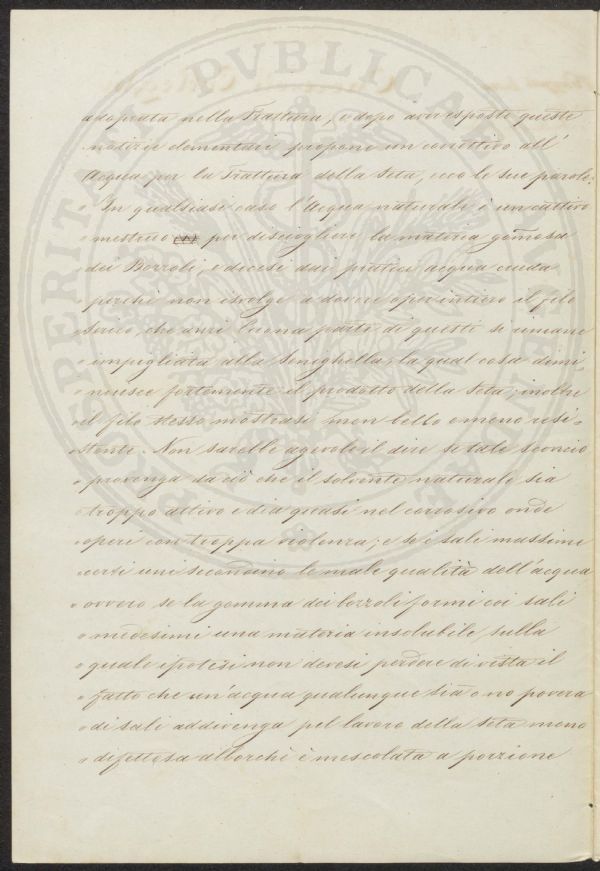 adoprata nella Trattura, e dopo aver esposte queste
notizie elementari propone un correttivo all'
Acqua per la Trattura della Seta, ecco le sue parole:
« In qualsiasi caso l'Acqua naturale è un cattivo
« mestruo per disciogliere la materia gom̃osa
« dei Bozzoli, e dicesi dai pratici acqua cruda
« perchè non isvolge a dovere per intiero il filo
« serico, che anzi buona parte di questi si rimane
« impigliata alla Sinighella, la qual cosa dimi-
« nuisce fortemente il prodotto della Seta; inoltre
« il filo stesso mostrasi men bello e meno resi-
« stente. Non sarebbe agevole il dire se tale sconcio
« provenga da ciò che il solvente naturale sia
« troppo attivo e dia quasi nel corrosivo onde
« operi con troppa violenza; e se i sali massime
« certi uni secondino le male qualità dell'acqua
« ovvero se la gomma dei bozzoli formi coi sali
« medesimi una materia insolubile, sulla
« quale ipotesi non devesi perdere di vista il
« fatto che un'acqua qualunque sia o no povera
« di sali addivenga pel lavoro della Seta meno
« difettosa allorchè è mescolata a porzione
PROSPERITATI PVBLICAE